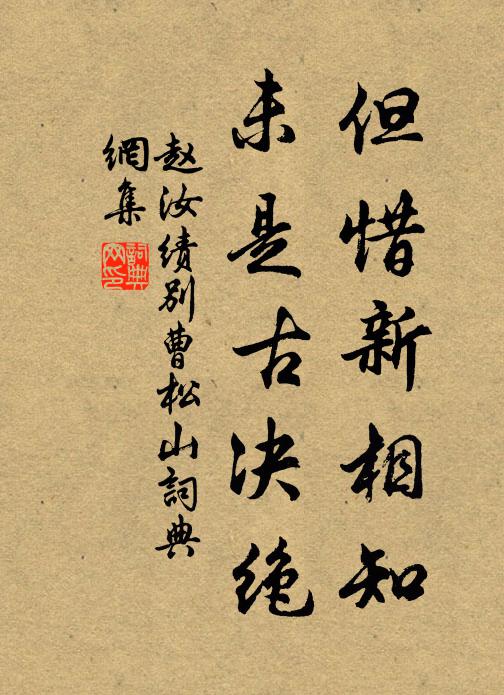 但惜新相知
未是古决绝
赵汝绩别曹松山詞典
網集
詞典网印